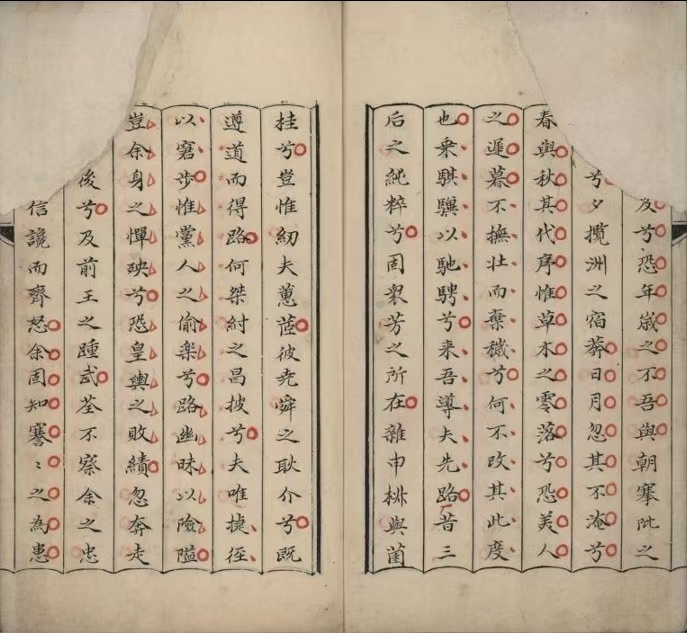 及兮恐年歲之不吾與朝搴阰之
兮夕攬洲之宿莽日月忽其不淹兮
春與秋其代序惟草木之零落兮恐美人
之遲暮不撫壯而棄穢兮何不改其此度
也乘騏驥以馳騁兮来吾導夫先路昔三
后之純粹兮固衆芳之所在雜申椒與菌
桂兮豈惟紉夫蕙茝彼堯舜之耿介兮既
遵道而得路何桀紂之昌披兮夫唯捷徑
以窘步惟黨人之偷樂兮路幽昧以險隘
豈余身之憚殃兮恐皇輿之敗績忽奔走
後兮及前王之踵武荃不察余之忠
信讒而齊怒余固知謇〻之為患